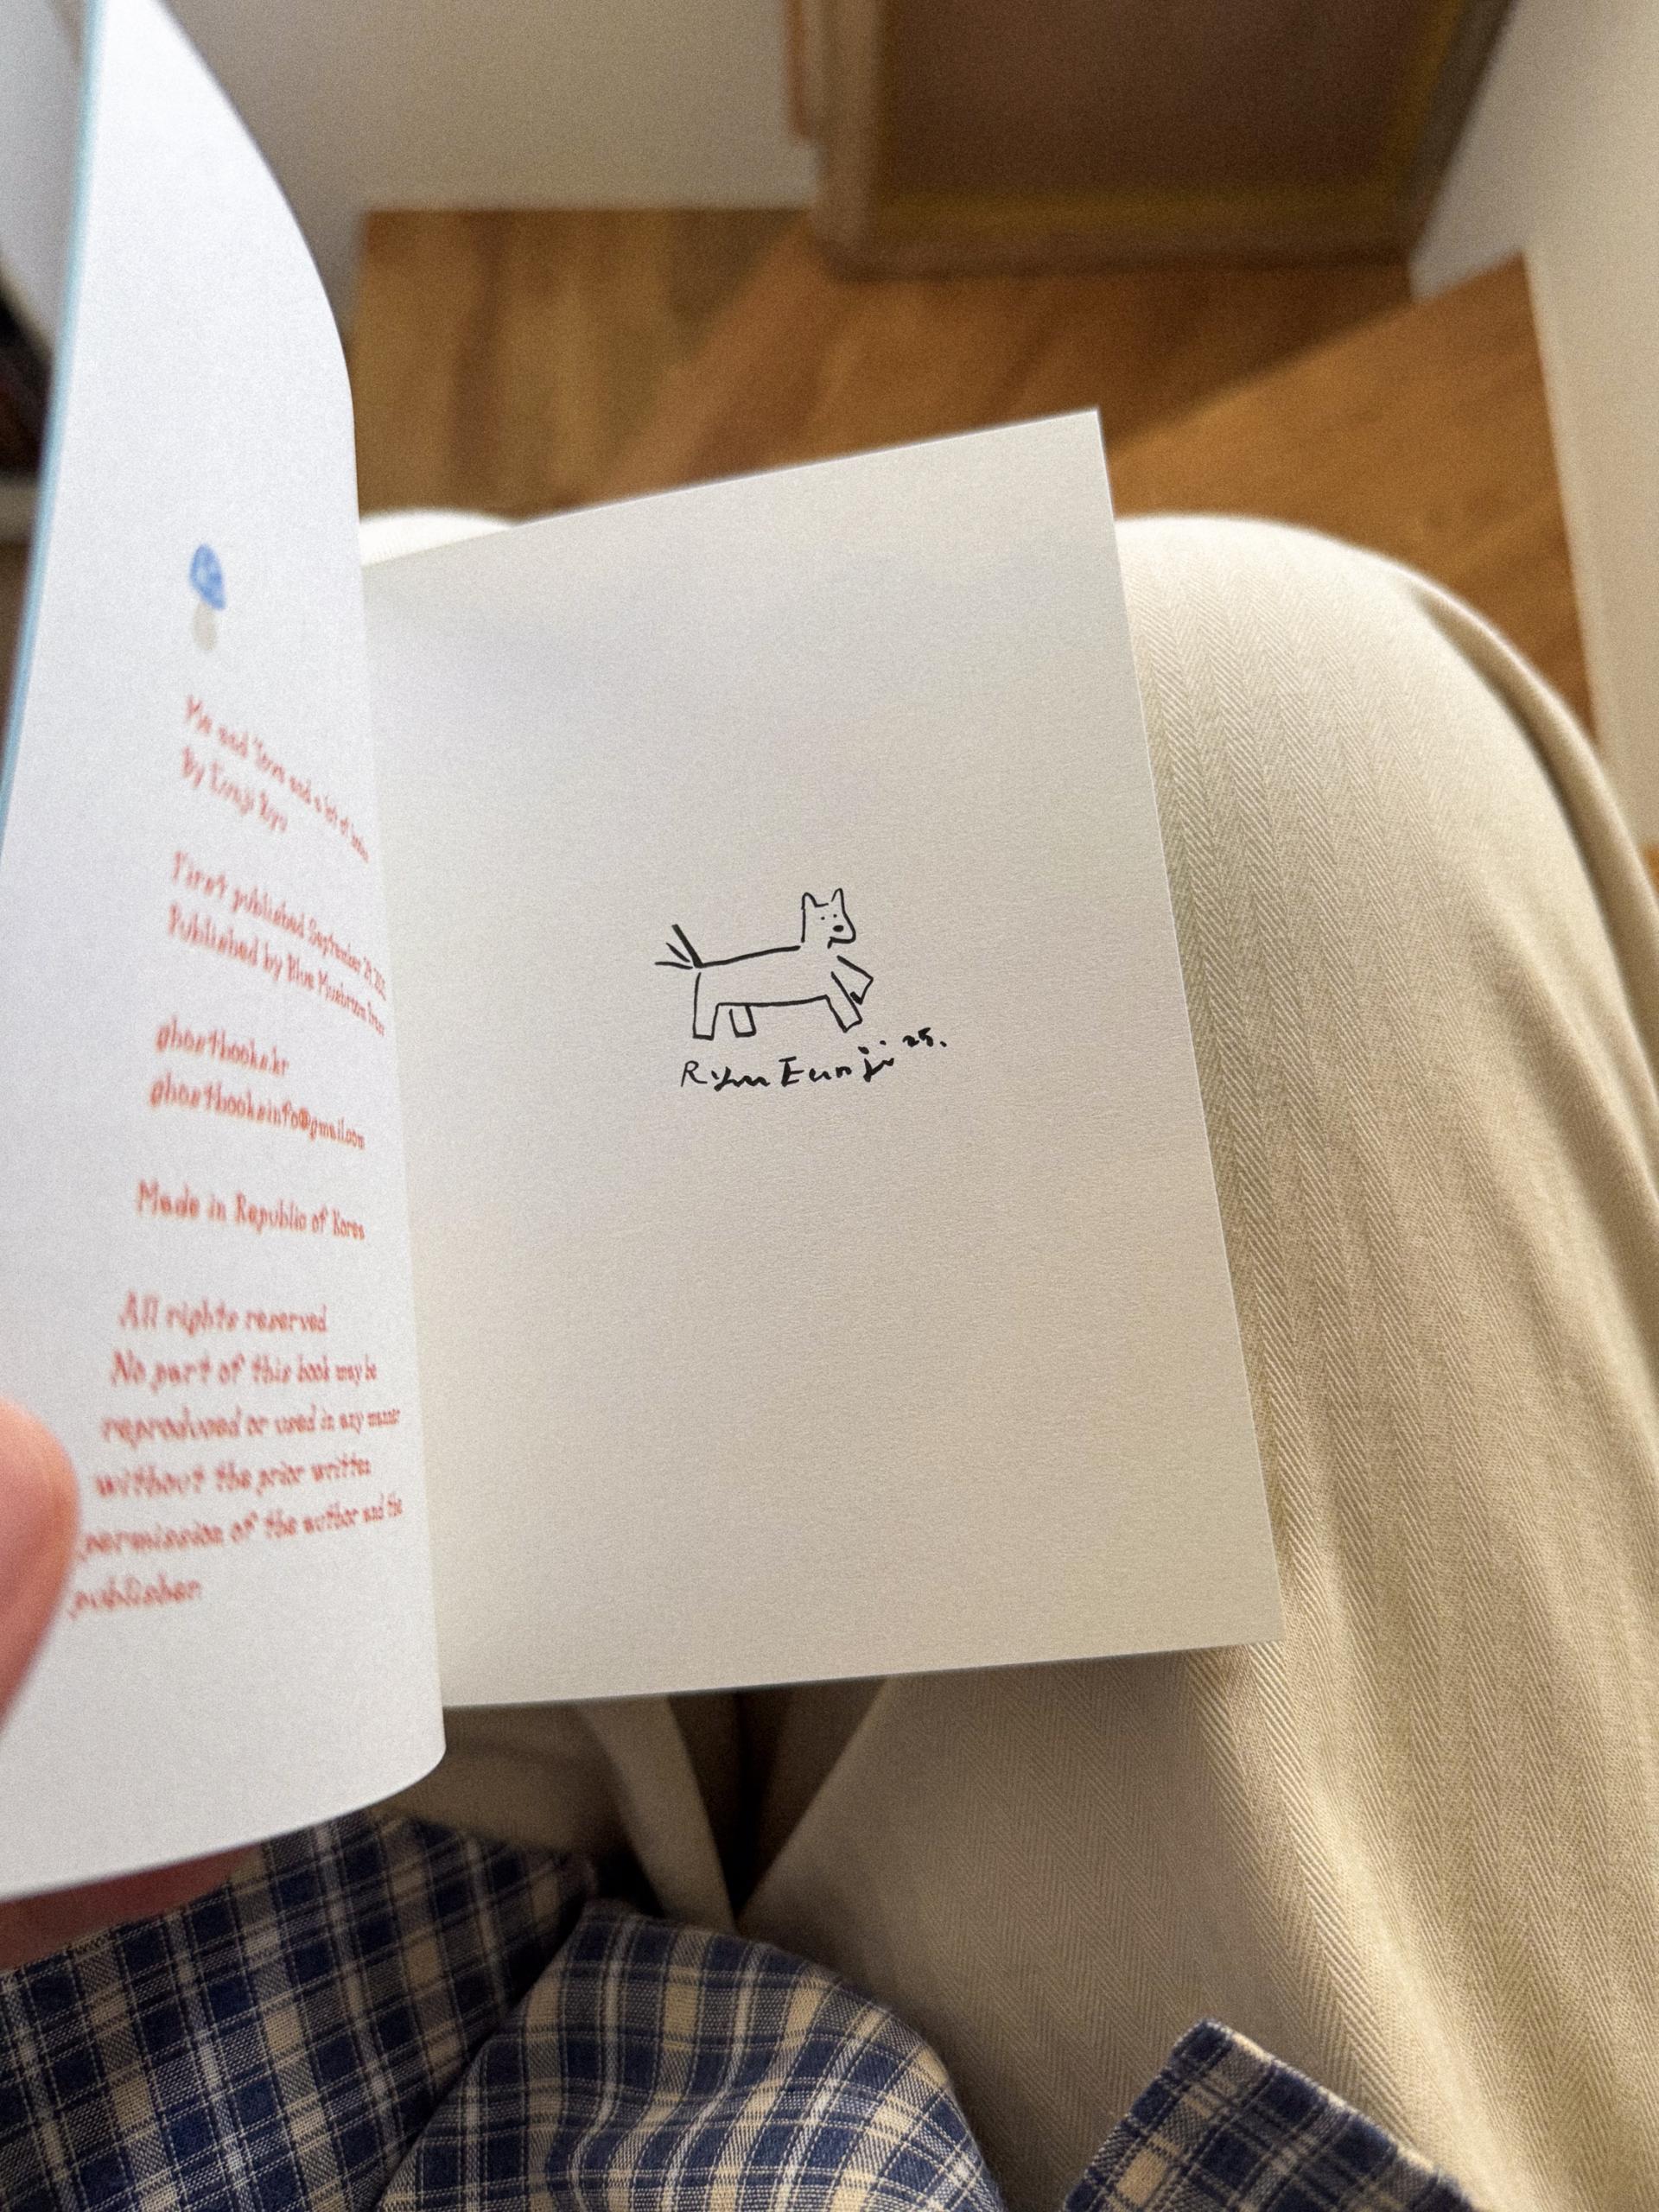 and and a lot of
By Eunji Ryu
First published September
Published by Blue Mushroom
ghostbooks.kr
ghostbooksinfo@gmail.com
Made in Republic of Korea
All rights reserved
No part of this book may be
reproduced or used in any manner
without the prior written
permission of the author and the
publisher
Ryu Eunji 25.